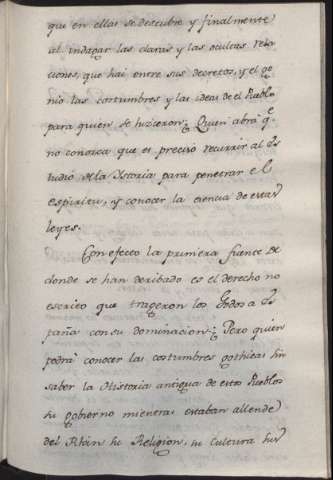 que en ellas se descubre y finalmente
al indagar las claras y las ocultas rela
ciones, que hai entre sus decretos, y el ge
nio las costumbres y las ideas de el Pueblo
para quien se hizieron; Quien abrá qe
no conosca que es preciso recurrir al es
tudio de la Istoria para penetrar el
espiritu, y conocer la ciencia de estas
leyes.
Con efecto la primera fuente de
donde se han deribado es el derecho no
escrito que trageron los Godos a Es
paña con su dominacion; Pero quien
podrá conocer las costumbres gothicas sin
saber la Historia antigua de estos Pueblos
su gobierno mientras estaban allende
del Rhin su Religion, su cultura sus